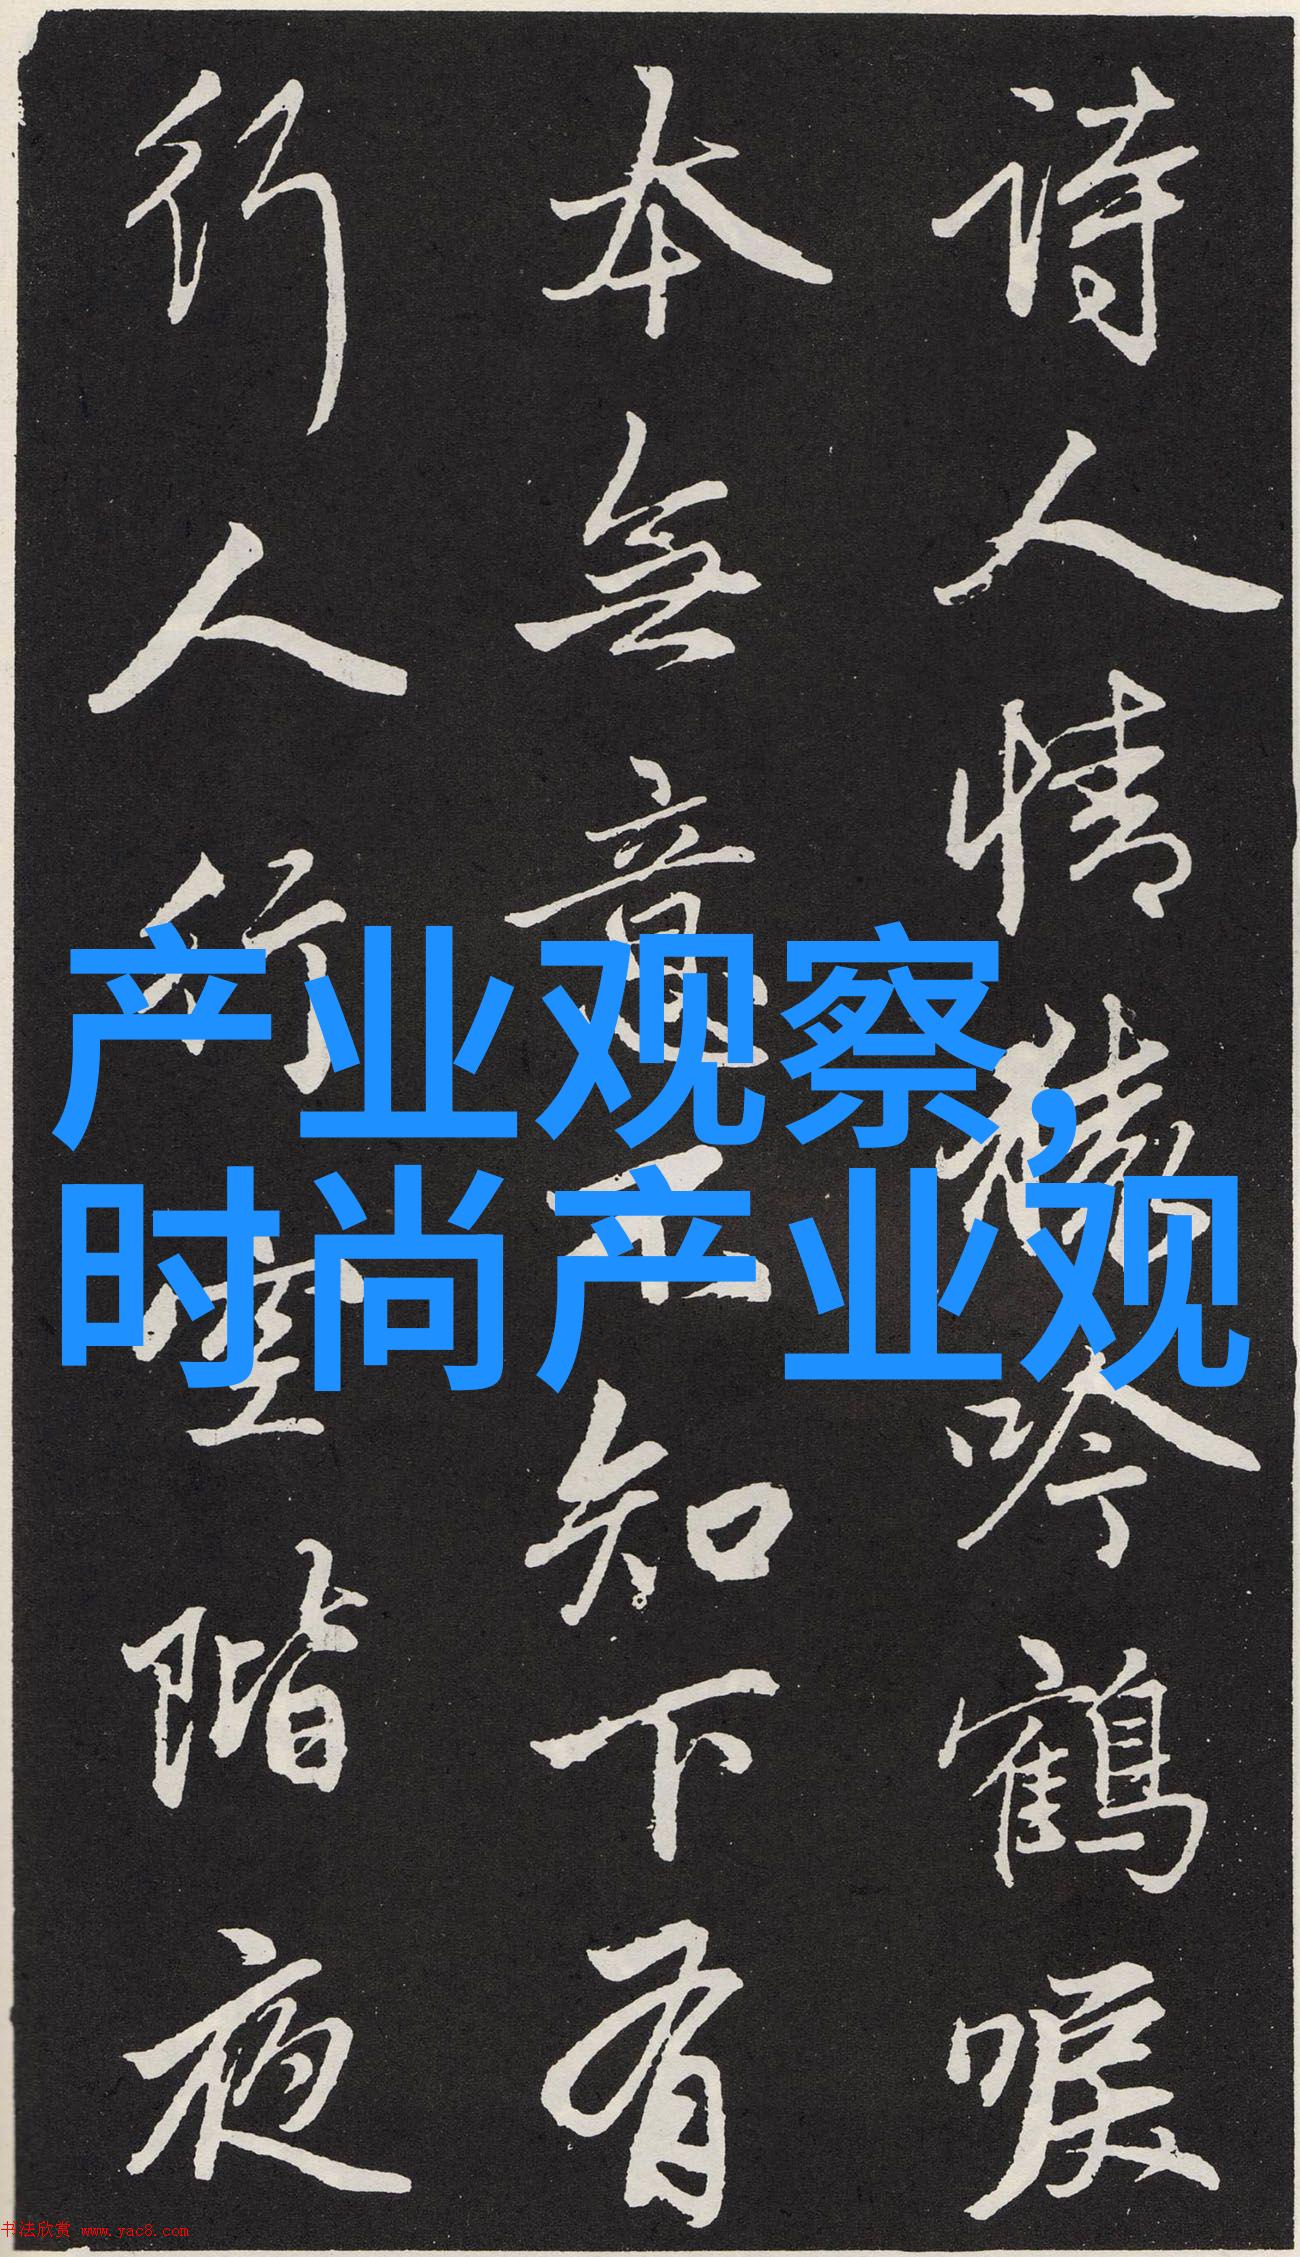 诗人情猿吟鹤唳
本无意不知下有
行人行空阶夜
产业观察,
时尚产业观
书法欣赏 www.yac8.com